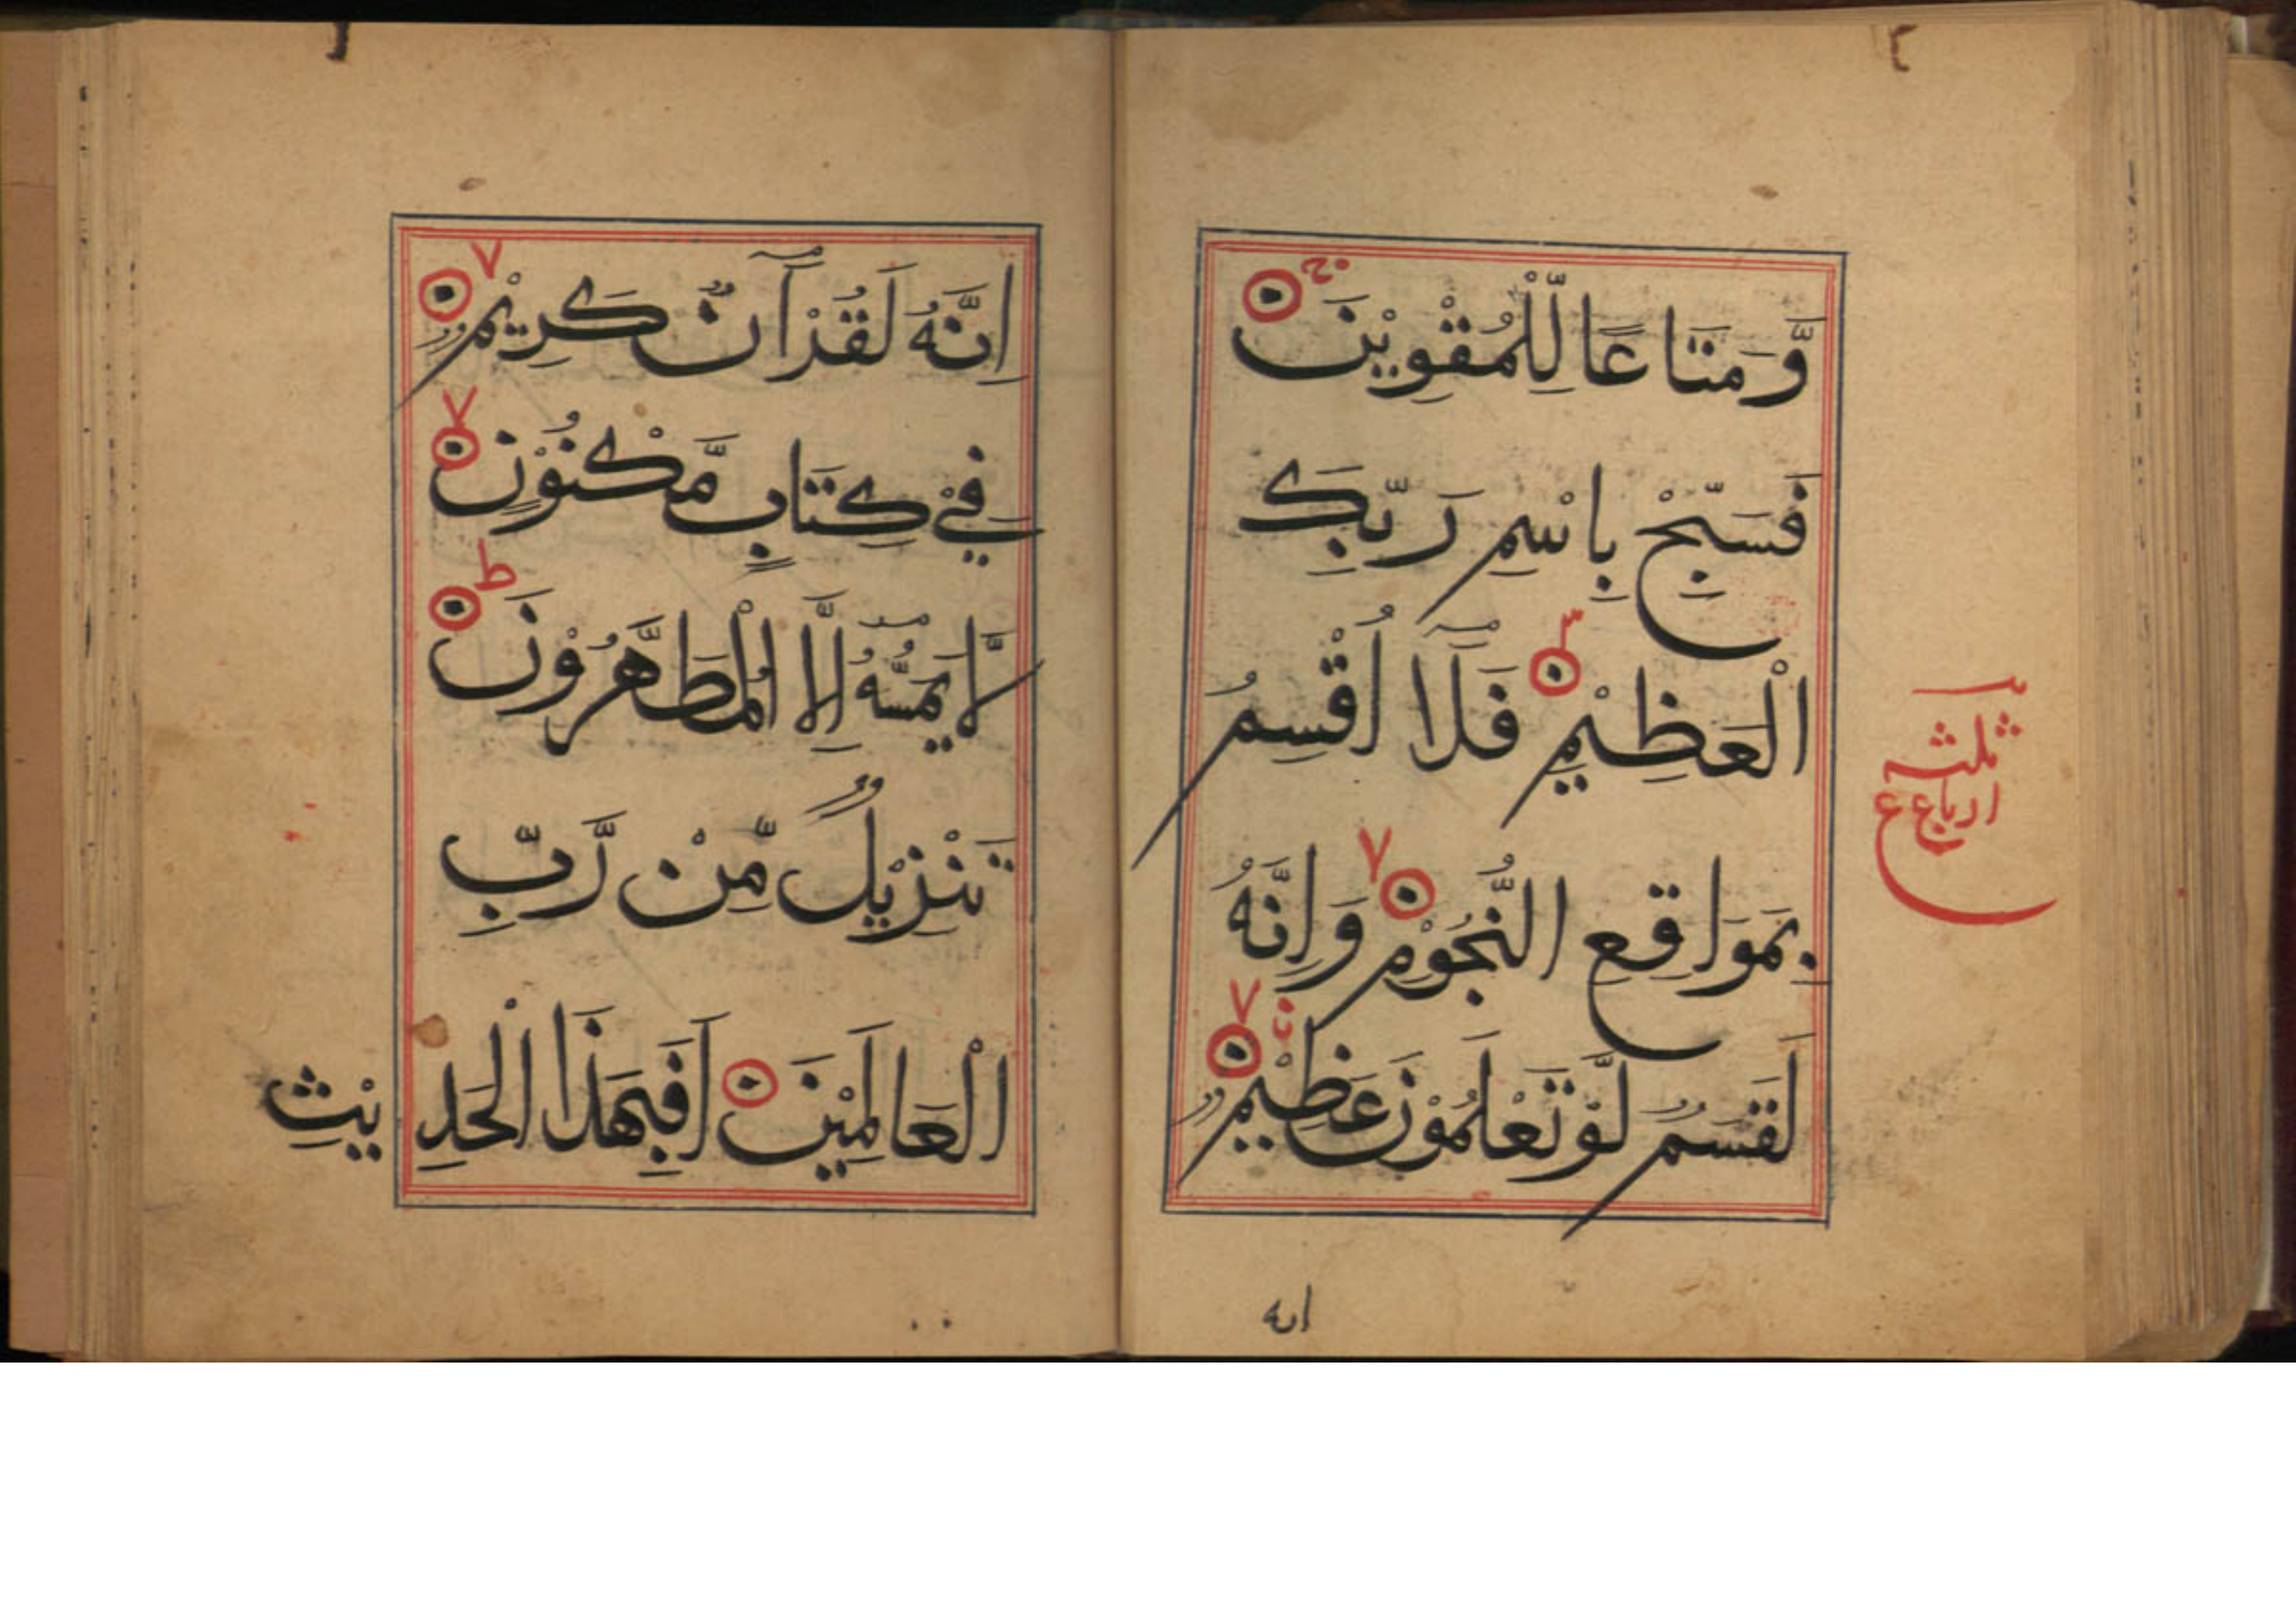 وَّمَتَاعًا لِّلْمُقْوِيْنَ
فَسَبِّحْ بِاسْمِ رَبِّكَ
الْعَظِيْمِ فَلَآ اُقْسِمُ
بِمَوَاقِعِ النُّجُوْمِ وَاِنَّهُ
لَقَسَمٌ لَّوْ تَعْلَمُوْنَ عَظِيْمٌ
ثلثة
ارباع ع
انه
اِنَّهُ لَقُرْآنٌ كَرِيْمٌ
فِيْ كِتَابٍ مَّكْنُوْنٍ
لَّا يَمَسُّهُ اِلَّا الْمُطَهَّرُوْنَ ط
تَنْزِيْلٌ مِّنْ رَّبِّ
الْعَالَمِيْنَ اَفَبِهَذَا الْحَدِيْثِ